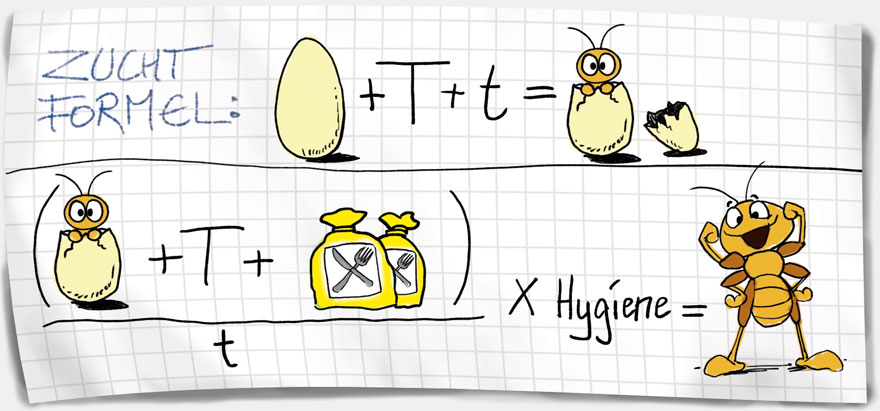 ZUCHT
FORMEL:
+ T + t =
( + T + )
t
X Hygiene =